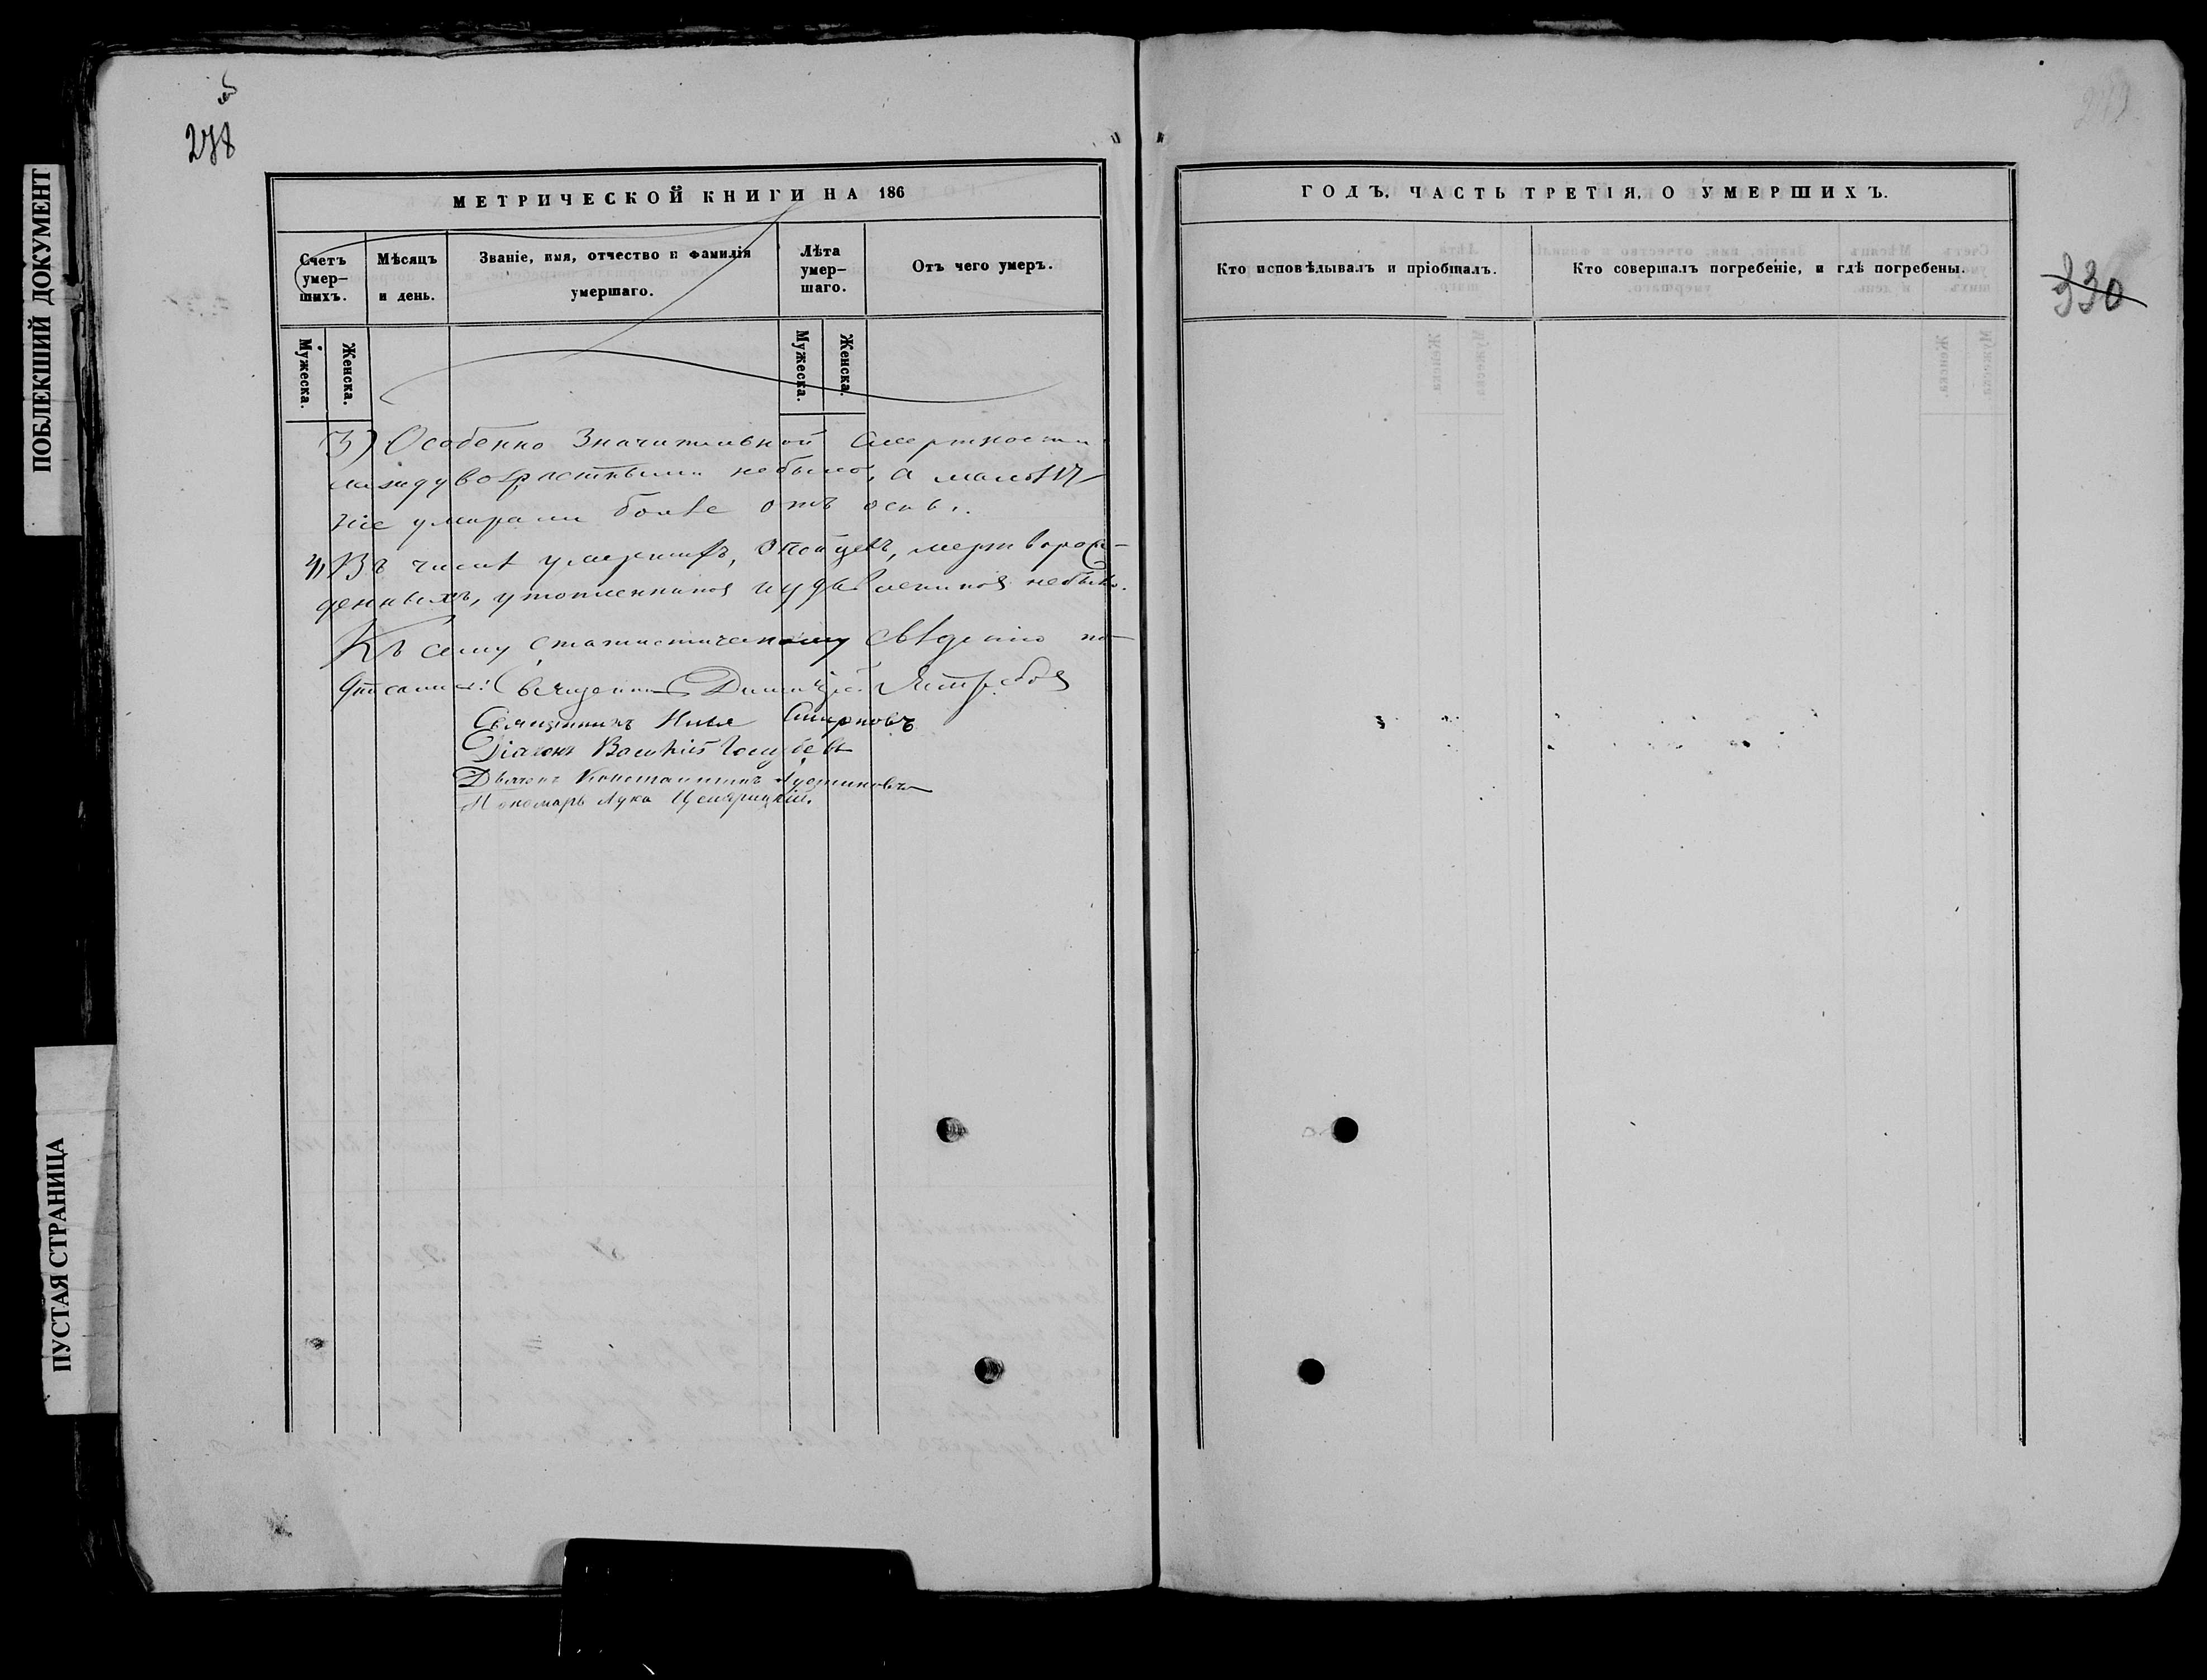 ПОБЛЕКШИЙ ДОКУМЕНТ
ПУСТАЯ СТРАНИЦА
278
МЕТРИЧЕСКОЙ КНИГИ НА 186
Счетъ умер-шихъ.
Мѣсяцъ и день.
Званіе, имя, отчество и фамилія умершаго.
Лѣта умер-шаго.
Отъ чего умеръ.
Мужеска.
Женска.
Мужеска.
Женска.
3) Особенно значительной смертности
между возрастными небыло, а малолѣт
ніе умирали болѣе отъ оспы.
4) Въ числѣ умершихъ, опойцевъ, мертворож-
денныхъ, утопленниковъ и удавлениковъ небыло.
Къ сему статистическому свѣденію по-
дписались: Священникъ Димитрій Ястребовъ
Священникъ Илья Смирновъ
Діаконъ Василій Голубевъ
Дьячекъ Константинъ Густиновъ
Пономарь Лука
ГОДЪ, ЧАСТЬ ТРЕТІЯ, О УМЕРШИХЪ.
Кто исповѣдывалъ и пріобщалъ.
Кто совершалъ погребеніе, и гдѣ погребены.
330